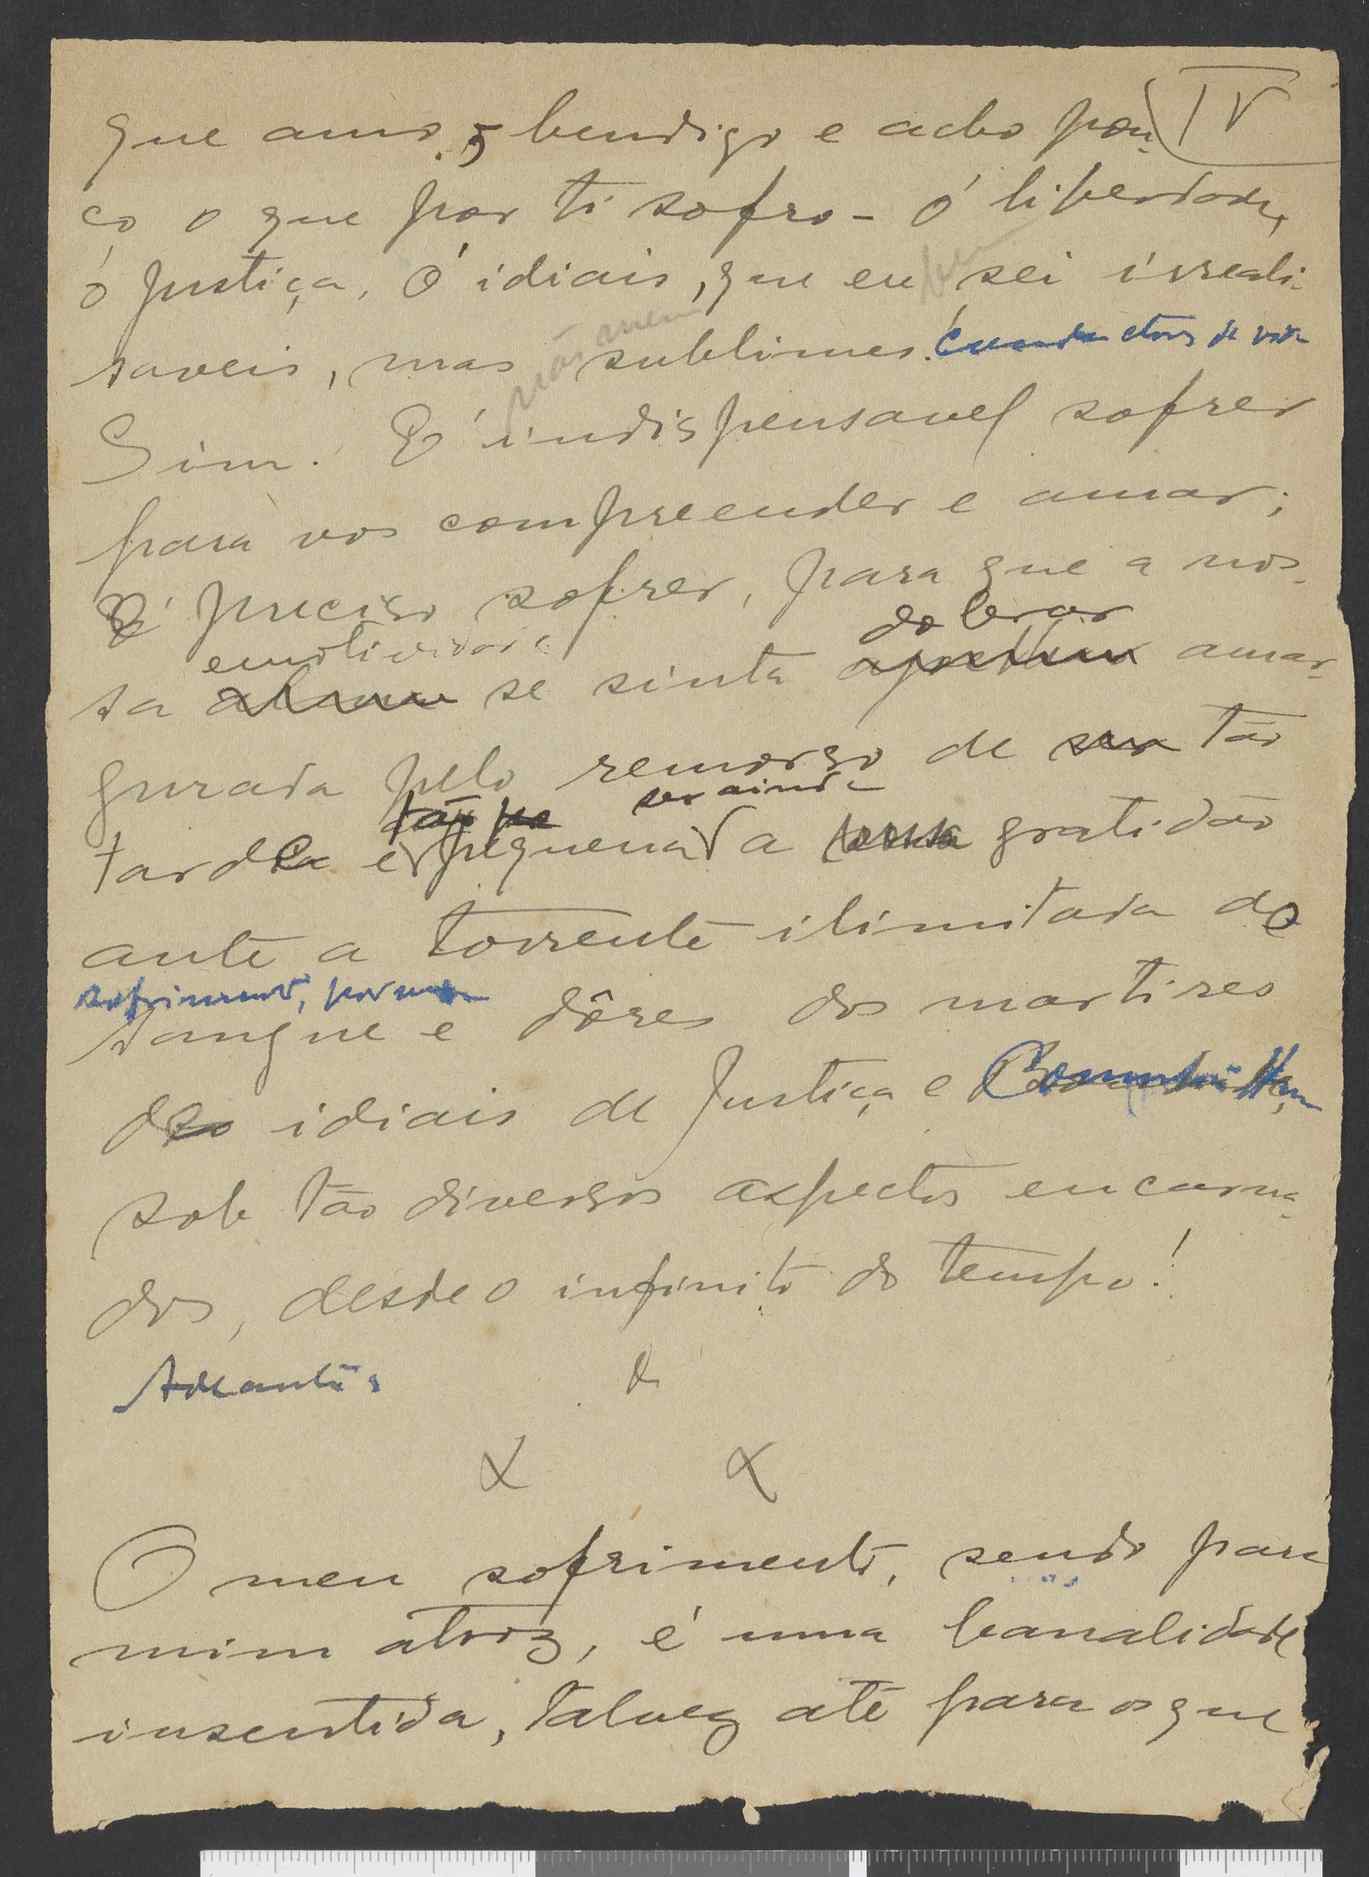 IV
que amo, bendigo e acho pou-
co o que por ti sofro - ó liberdade,
ó justiça, ó idiais, que eu sei irreali-
saveis, mas sublimes!
Sim. É indispensavel sofrer
para vos compreender e amar;
É preciso sofrer, para que a nos-
emotividade dolorar
sa alma se sinta amar-
gurada pelo remorso de ser tão
tão pe ser ainda
tarda e pequena a nossa gratidão
ante a torrente ilimitada de
sofrimento,
sangue e dôres dos martires
dos idiais de Justiça e
sob tão diversos aspectos encarna-
dos, desde o infinito do tempo!
Adeante
x
x x
O meu sofrimento, sendo para
mim atroz, é uma banalidade
insentida, talvez até para os que